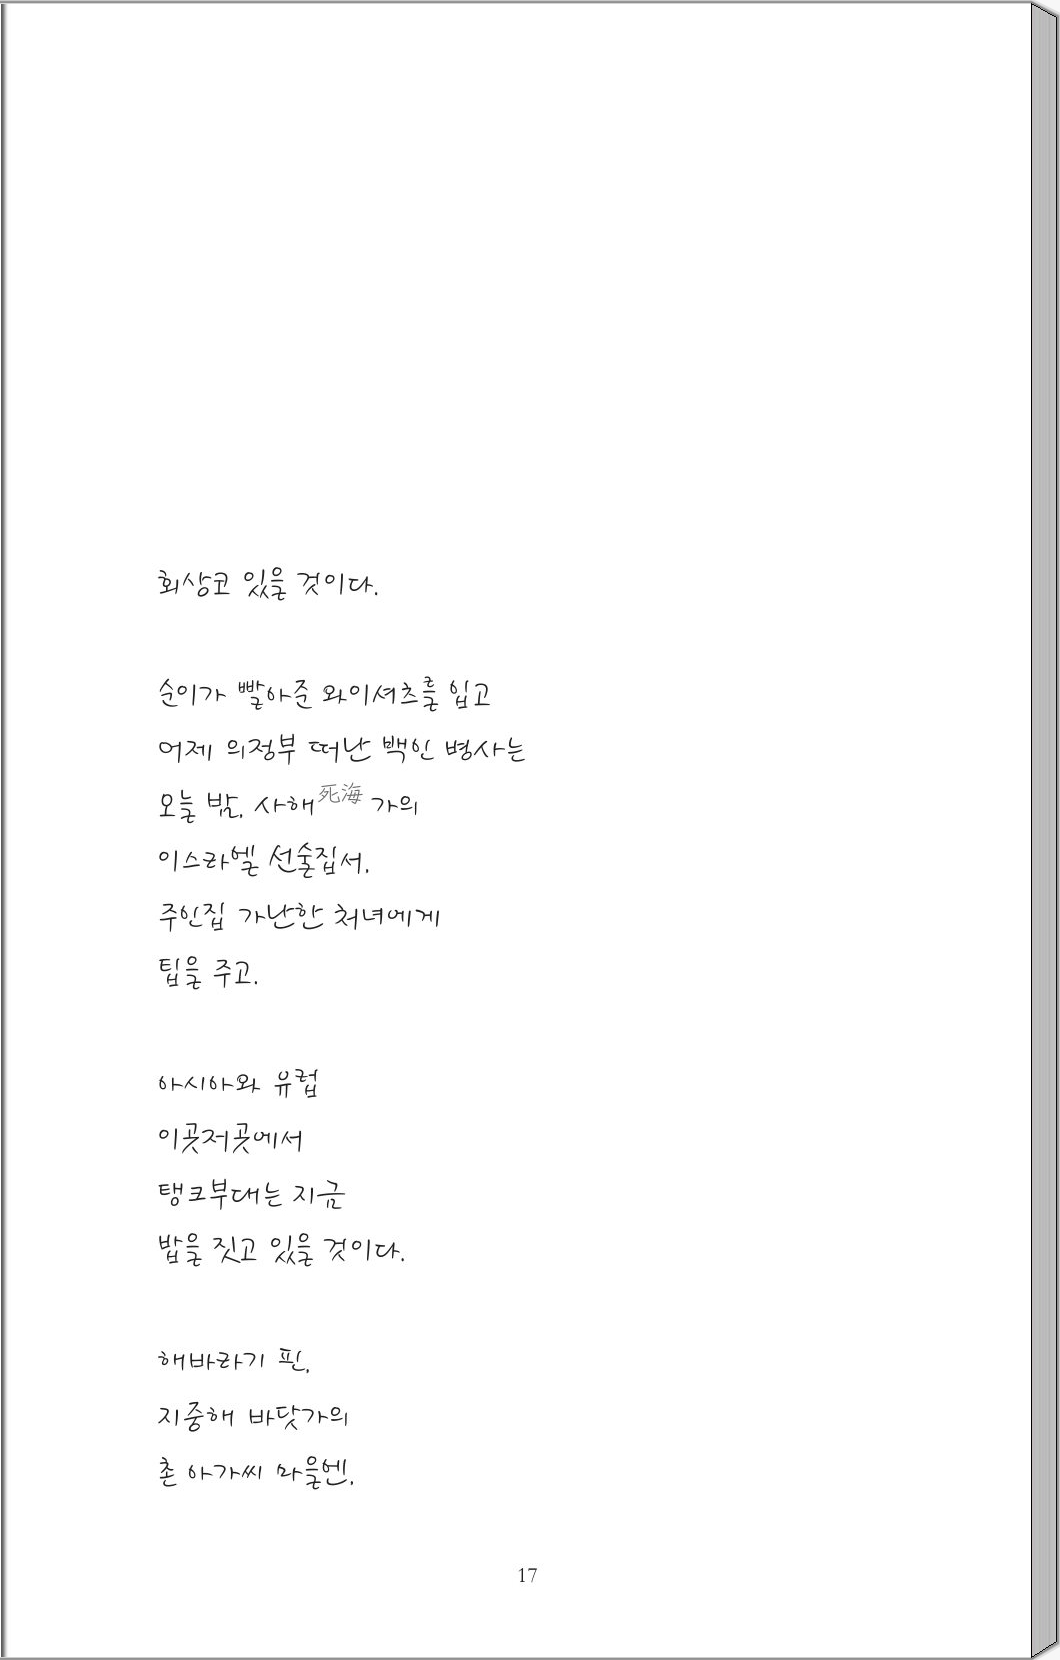 회상코 있을 것이다.
순이가 빨아준 와이셔츠를 입고
어제 의정부 떠난 백인 병사는
오늘 밤, 사해死海 가의
이스라엘 선술집서,
주인집 가난한 처녀에게
팁을 주고,
아시아와 유럽
이곳저곳에서
탱크부대는 지금
밥을 짓고 있을 것이다.
해바라기 핀,
지중해 바닷가의
촌 아가씨 마을엔,
17